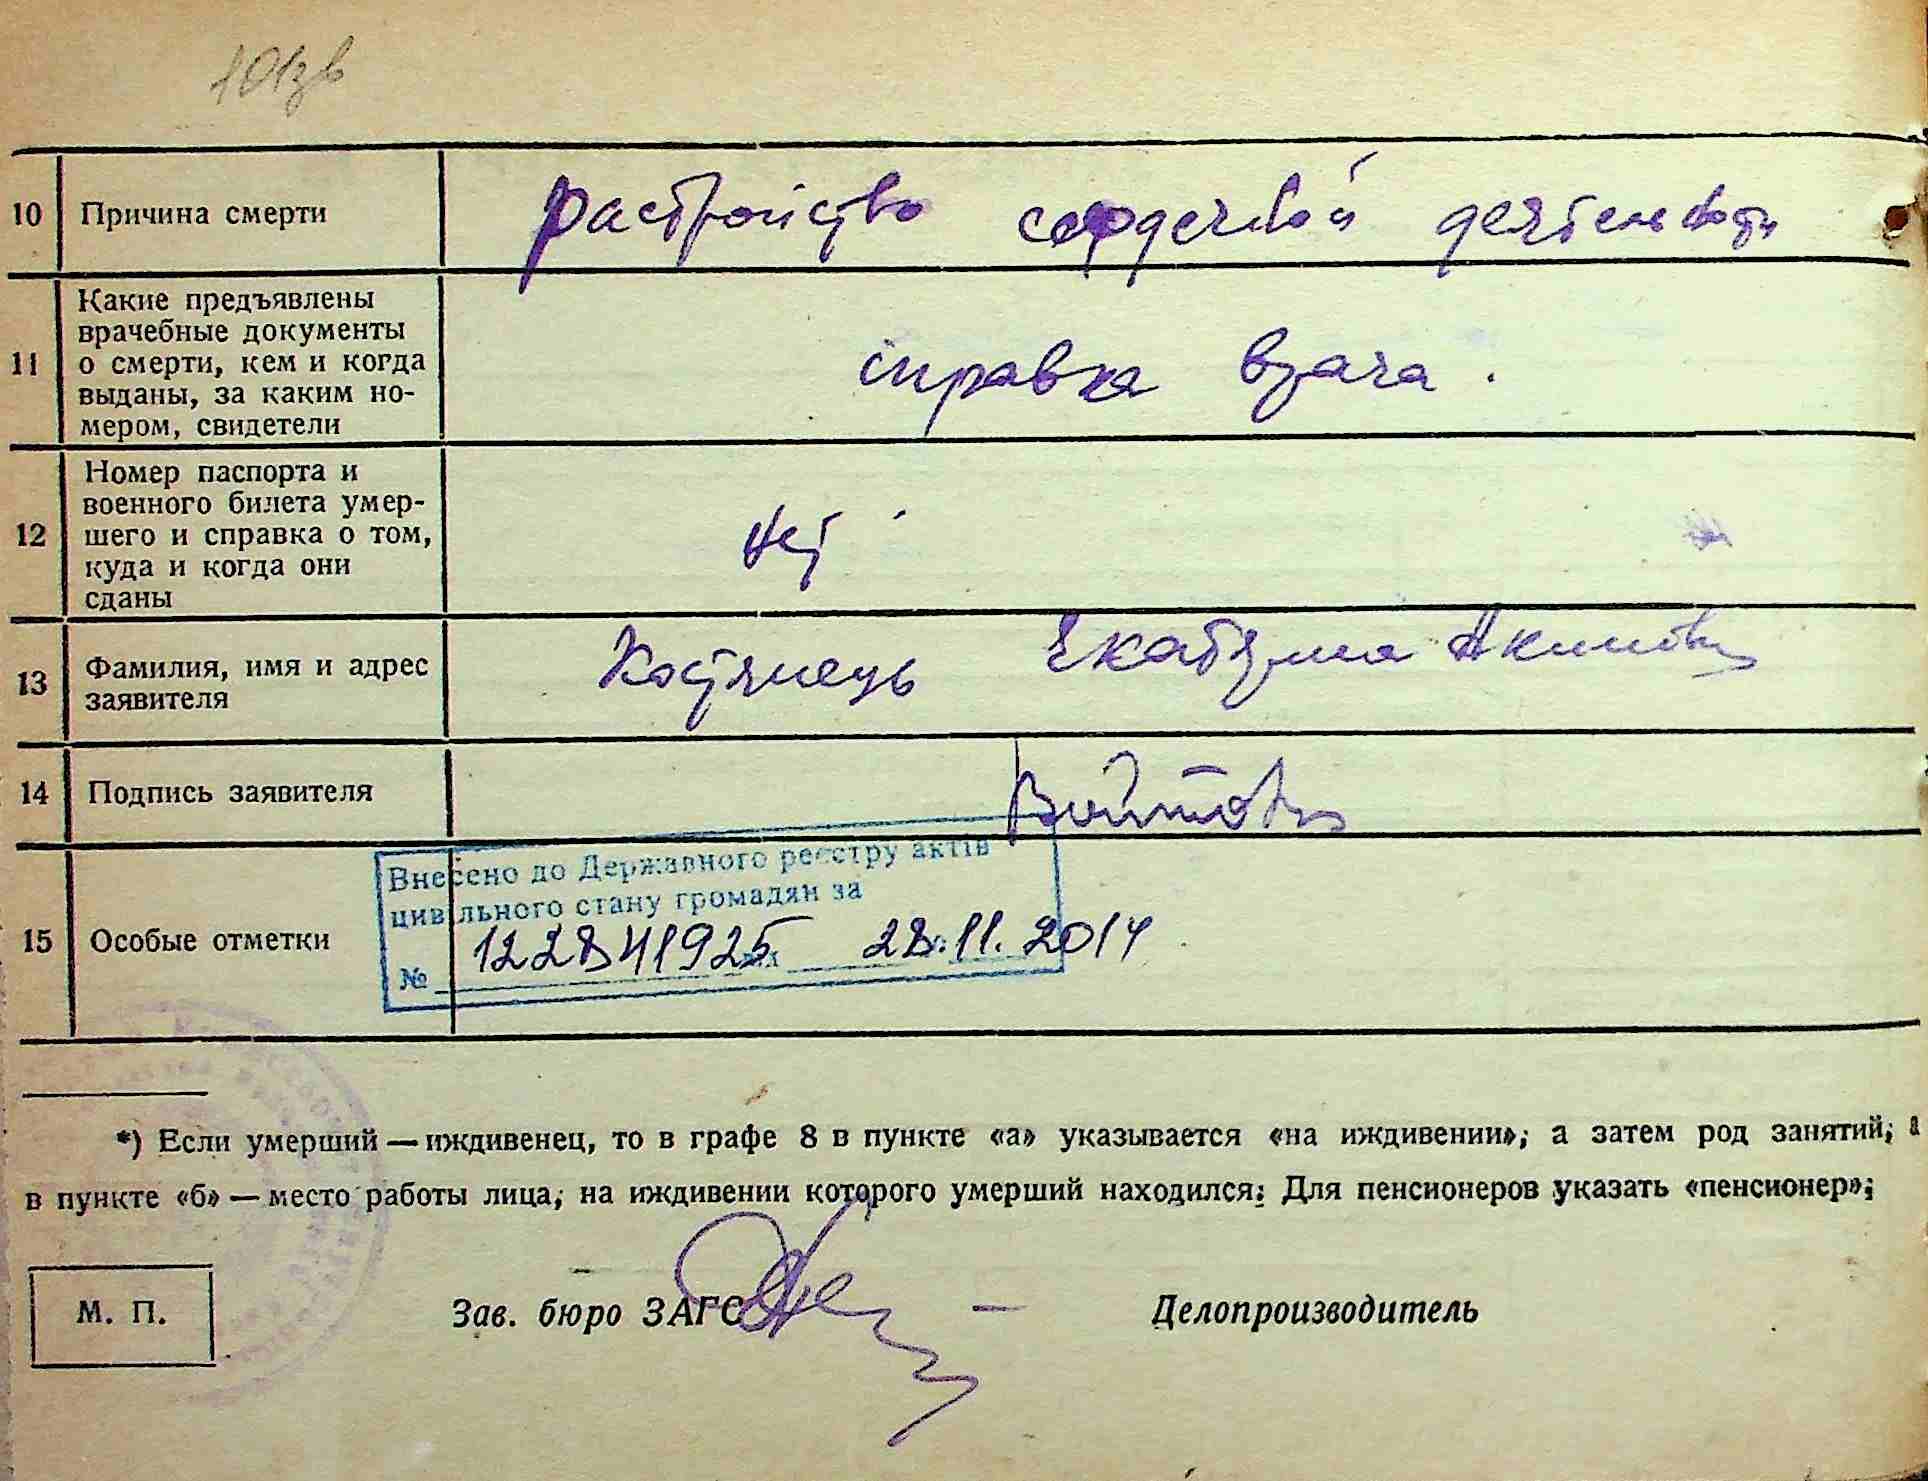 101зв
10 Причина смерти растройство сердечной деятельности
11 Какие предъявлены
врачебные документы
о смерти, кем и когда
выданы, за каким но-
мером, свидетели
справка врача.
12 Номер паспорта и
военного билета умер-
шего и справка о том,
куда и когда они
сданы
нет
13 Фамилия, имя и адрес
заявителя
Костянець Екатерина Акимовна
14 Подпись заявителя
15 Особые отметки
Внесено до Державного реєстру актів
цивільного стану громадян за
№ 122841925 28.11.2014
*) Если умерший — иждивенец, то в графе 8 в пункте «а» указывается «на иждивении», а затем род занятий, а
в пункте «б» — место работы лица, на иждивении которого умерший находился. Для пенсионеров указать «пенсионер»;
М. П.
Зав. бюро ЗАГС — Делопроизводитель